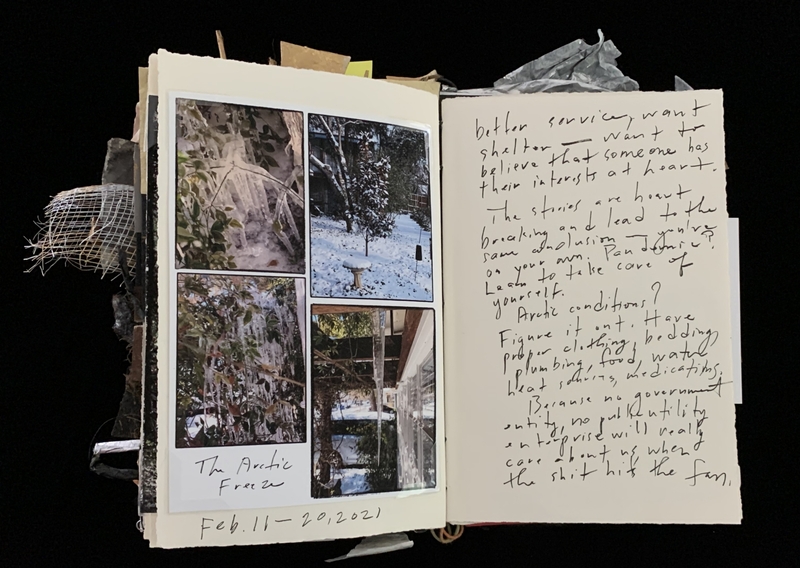 The Arctic
Freeze
Feb. 11 – 20, 2021
better service, want
shelter — want to
believe that someone has
their interests at heart.
The stories are heart
breaking and lead to the
same conclusion — you're
on your own. Pandemic?
Learn to take care of
yourself.
Arctic conditions?
Figure it out. Have
proper clothing, bedding,
plumbing, food, water
heat sources, medications.
Because no government
entity, no public utility
enterprise will really
care about us when
the shit hits the fan.